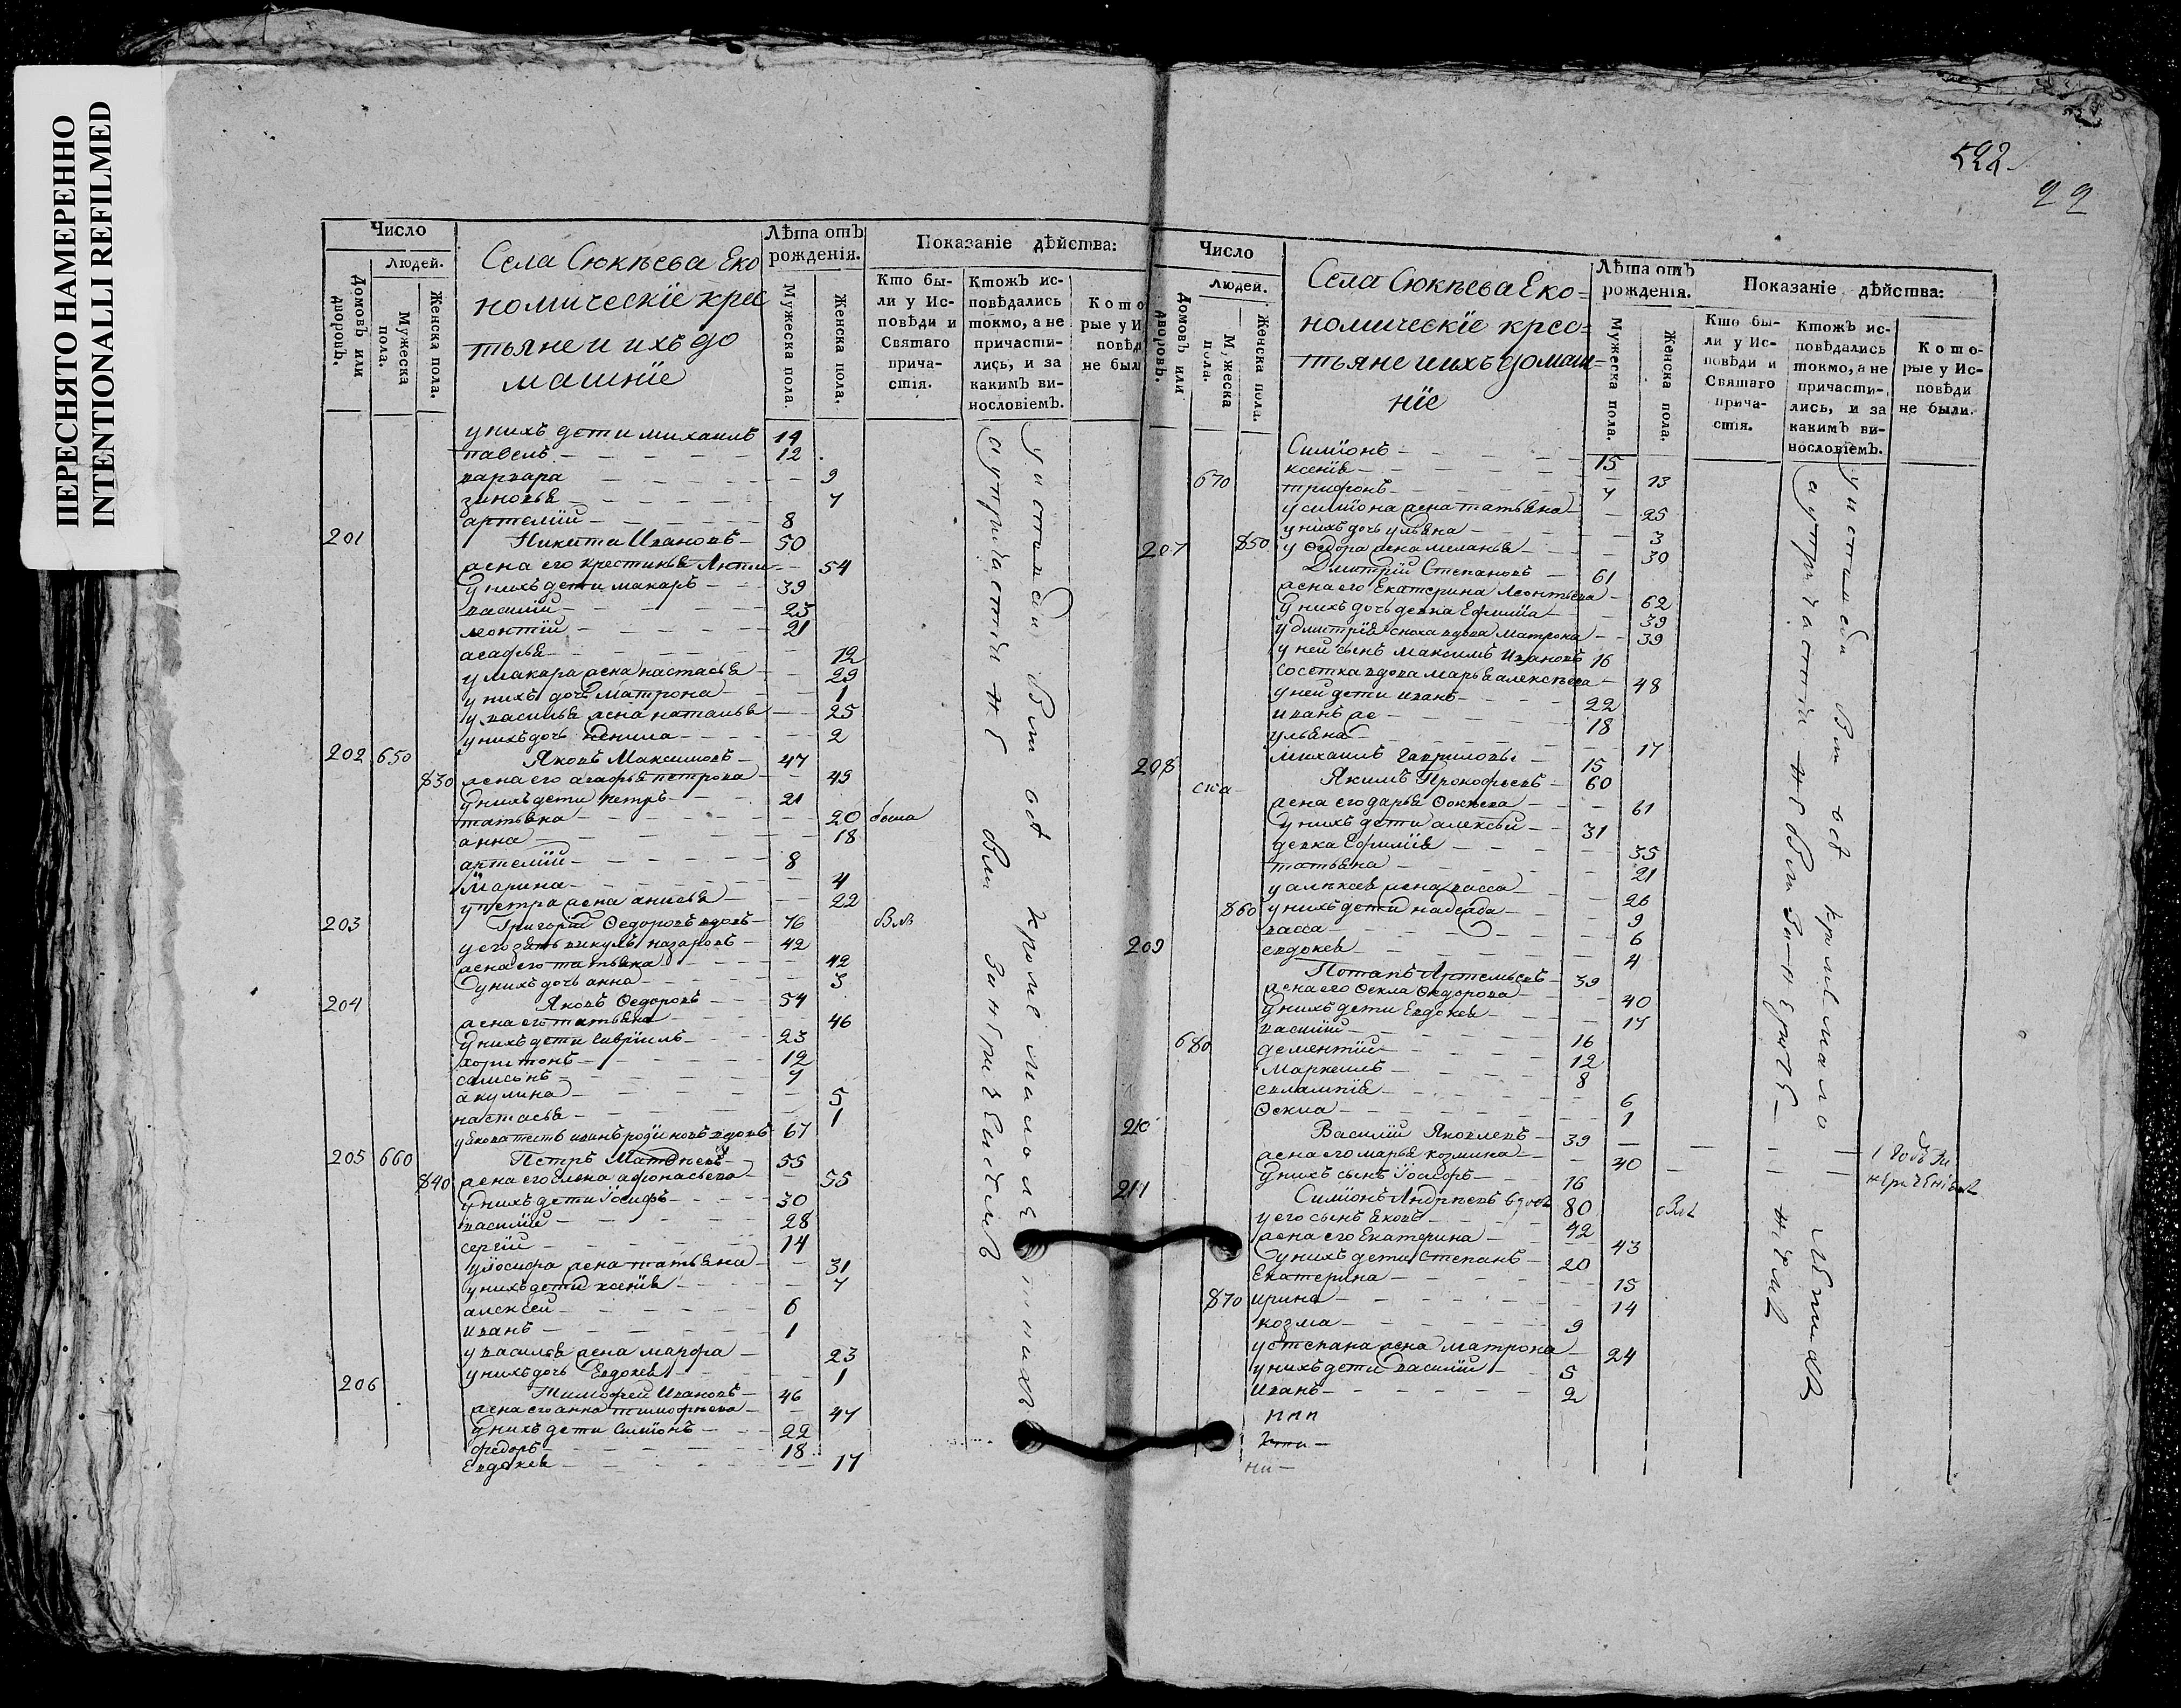 ПЕРЕСНЯТО НАМЕРЕННО
INTENTIONALLI REFILMED
522
22
Число
Людей.
Домовъ или дворовъ.
Мужеска пола.
Женска пола.
Села Сюкѣева Еко
номическїе крес
тьяне и ихъ до
машнїе
Лѣта отъ рожденїя.
Мужеска пола.
Женска пола.
Показанїе дѣйства:
Кто бы-
ли у Ис-
повѣди и
Святаго
прича-
стїя.
Ктожъ ис-
повѣдались
токмо, а не
причасти-
лись, и за
какимъ ви-
нословїемъ.
Кото
рые у И
повѣд
не был
у нихъ дети михаилъ 14
павелъ 12
варвара 9
зиновья 7
артемїй 8
201 Никита Ивановъ 50
жена его крестинья 54
у нихъ дети макаръ 39
василїй 23
леонтїй 21
агафья 12
у макара жена настасья 29
у нихъ дочь матрона 1
у василья жена наталья 25
у нихъ дочь 2
202 650 Яковъ Максимовъ 47
830 жена его агафья петрова 49
у нихъ дети петръ 21
татьяна 20 была
анна 18
артемїй 8
Марина 4
у петра жена анисья 22
203 Григорїй Федоровъ вдовъ 76
у его зять викулъ назаровъ 42
жена его татьяна 42
у нихъ дочь анна 3
204 Яковъ Федоровъ 54
жена его татьяна 46
у нихъ дети гаврїилъ 23
харитонъ 12
самсонъ 7
акулина 5
настасья 1
у якова тесть иванъ родїновъ вдовъ 67
205 660 Петръ Матвѣевъ 55
840 жена его елена афонасьева 55
у нихъ дети Їосифъ 30
василїй 28
сергїй 14
у їосифа жена татьяна 31
у нихъ дети ксенїя 7
алексей 6
иванъ 1
у василья жена марфа 23
у нихъ дочь Евдокея 1
206 Тимофей Ивановъ 46
жена его анна тимофѣева 47
у нихъ дети Симїонъ 22
федоръ 18
Евдокея 17
Число
Людей.
Домовъ или дворовъ.
Мужеска пола.
Женска пола.
Села Сюкѣева Еко=
номическїе крес=
тьяне и ихъ домаш=
нїе
Лѣта отъ рожденїя.
Мужеска пола.
Женска пола.
Показанїе дѣйства:
Кто бы-
ли у Ис-
повѣди и
Святаго
прича-
стїя.
Ктожъ ис-
повѣдались
токмо, а не
причасти-
лись, и за
какимъ ви-
нословїемъ.
Кото-
рые у Ис-
повѣди
не были.
Симїонъ 15
ксенїя 13
670 трифонъ 7
у симїона жена татьяна 25
у нихъ дочь ульяна 3
850 у федора жена меланья 30
207 Дмитрїй Степановъ 61
жена его Екатерина Леонтьева 62
у нихъ дочь девка Ефимїя 39
у дмитрїя сноха вдова Матрона 39
у ней сынъ Максимъ Ивановъ 16
сосетка вдова марья алексѣева 48
у ней дети иванъ 22
иванъ же 18
ульяна 17
михаилъ гавриловъ 15
208 Якимъ Прокофьевъ 60
жена его дарья 61
у нихъ дети алексѣй 31
девка Ефимїя 35
татьяна 21
у алѣксея жена васса 26
860 у нихъ дети надежда 9
васса 6
евдокея 4
209 Потапъ Артемьевъ 39
жена его Фекла Федорова 40
у нихъ дети Евдокея 17
василїй 16
680 дементїй 12
Маркеилъ 8
евлампїя 6
Фекла 1
210 Василїй Яковлевъ 39
жена его марья козмина 40
у нихъ сынъ Їосифъ 16
211 Симїонъ Андрѣевъ вдовъ 80
у его сынъ яковъ 42
жена его Екатерина 43
у нихъ дети Степанъ 20
Екатерина 15
870 ирина 14
козма 9
у степана жена матрона 24
у нихъ дети василїй 5
Иванъ 2